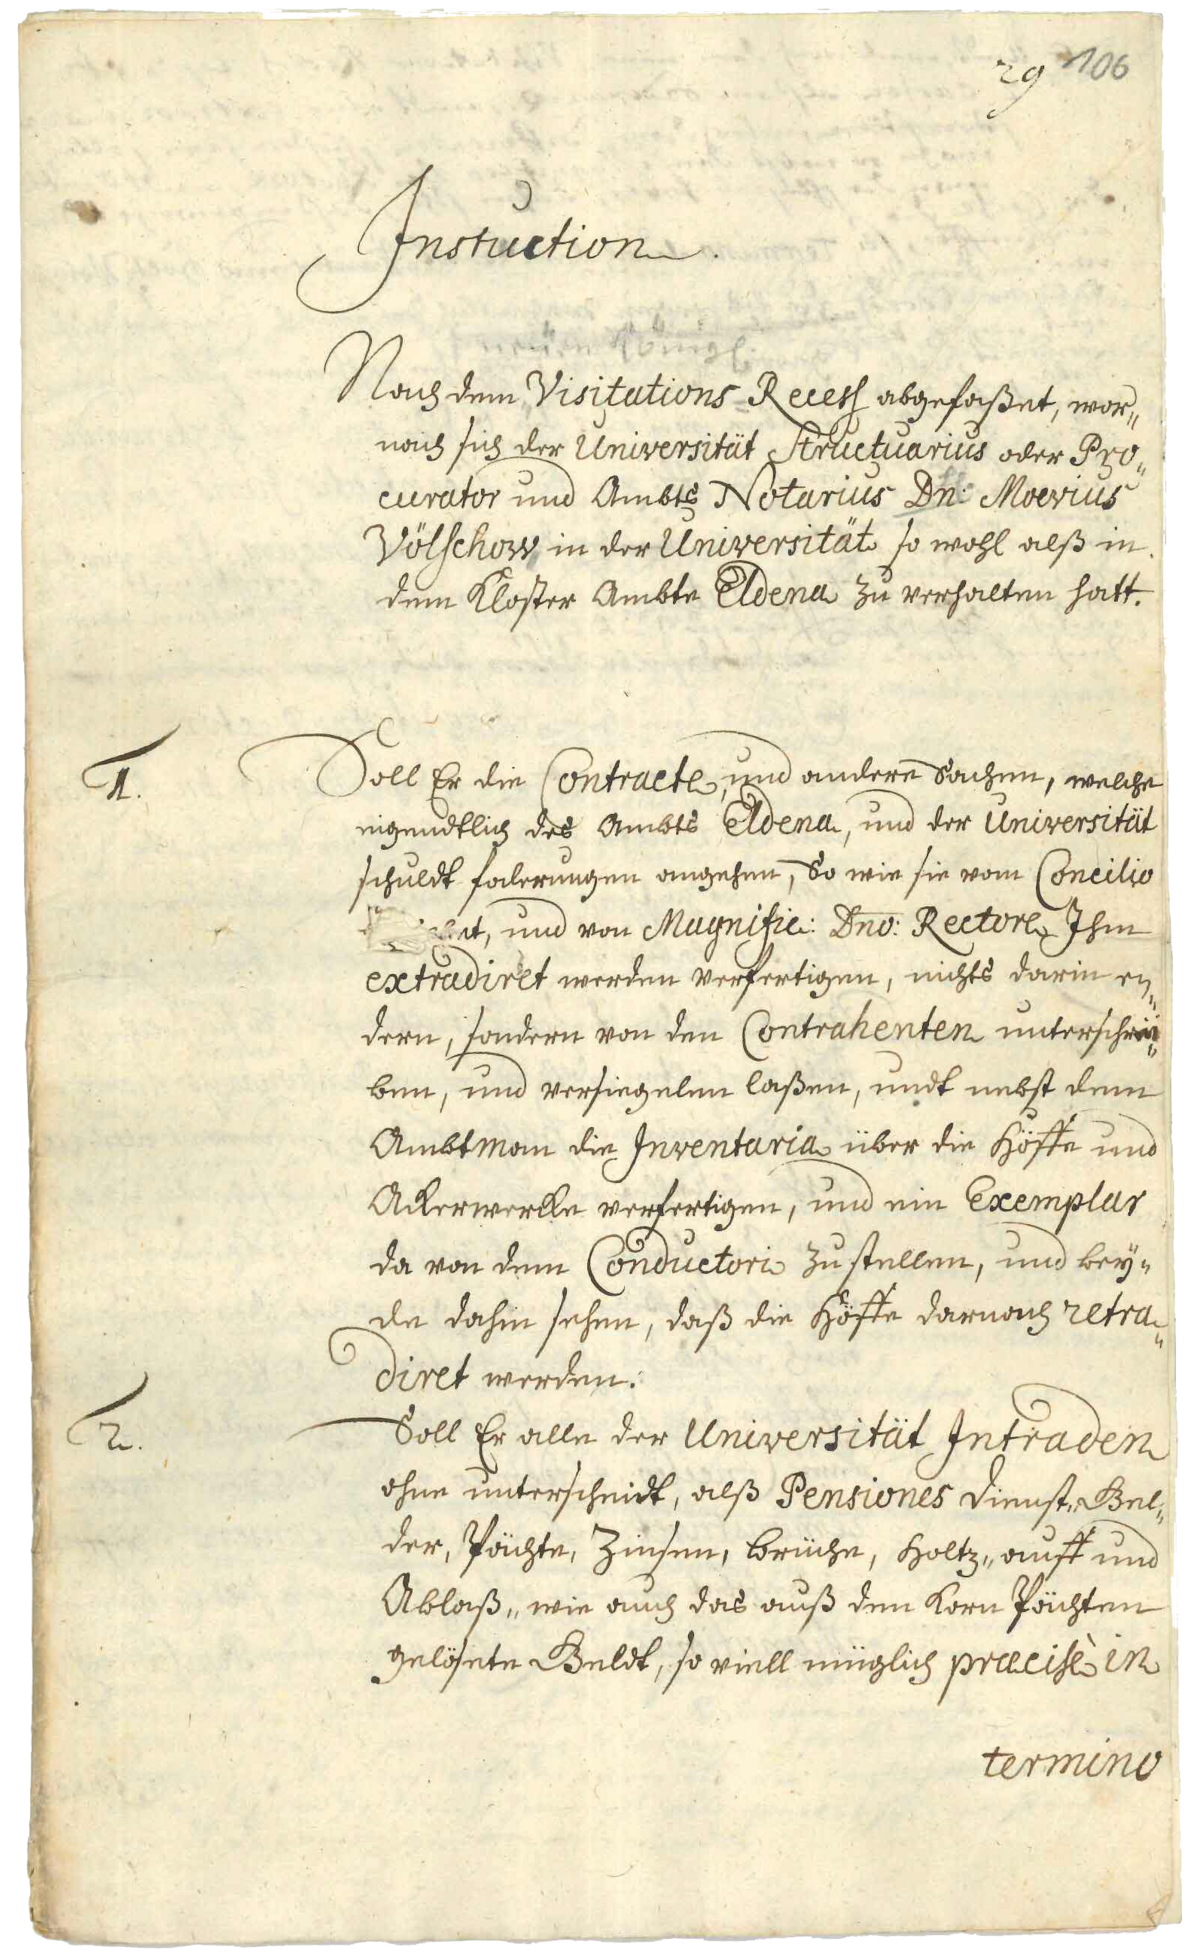 29 106
Instuction.
Nach dem Visitations Recess abgefaßet, wor„
nach sich der Universität Structuarius oder Pro„
curator und Ambts Notarius Dn: Moevius
Völschow in der Universität so wohl alß in
dem Kloster Ambte Eldena zu verhalten hatt.
1.
Soll Er die Contracte, und andere Sachen, welche
eigendtlich des Ambts Eldena, und der Universität
schuldt foderungen angehen, So wie sie vom Concilio
und von Magnific: Dno: Rectore Ihm
extradiret werden verfertigen, nichts darin en„
dern, sondern von den Contrahenten unterschrei„
ben, und versiegelen laßen, undt nebst dem
Ambtman die Inventaria über die Höffe und
Ackerwercke verfertigen, und ein Exemplar
da von dem Conductori zu stellen, und bey„
de dahin sehen, daß die Höffe darnach retra„
diret werden.
2.
Soll Er alle der Universität Intraden
ohne unterscheidt, alß Pensiones Dienst„ Gel„
der, Pächte, Zinsen, brüche, Holtz„ auff und
Ablaß„ wie auch das auß den Korn Pächten
gelösete Geldt, so viell müglich præcisè in
termino